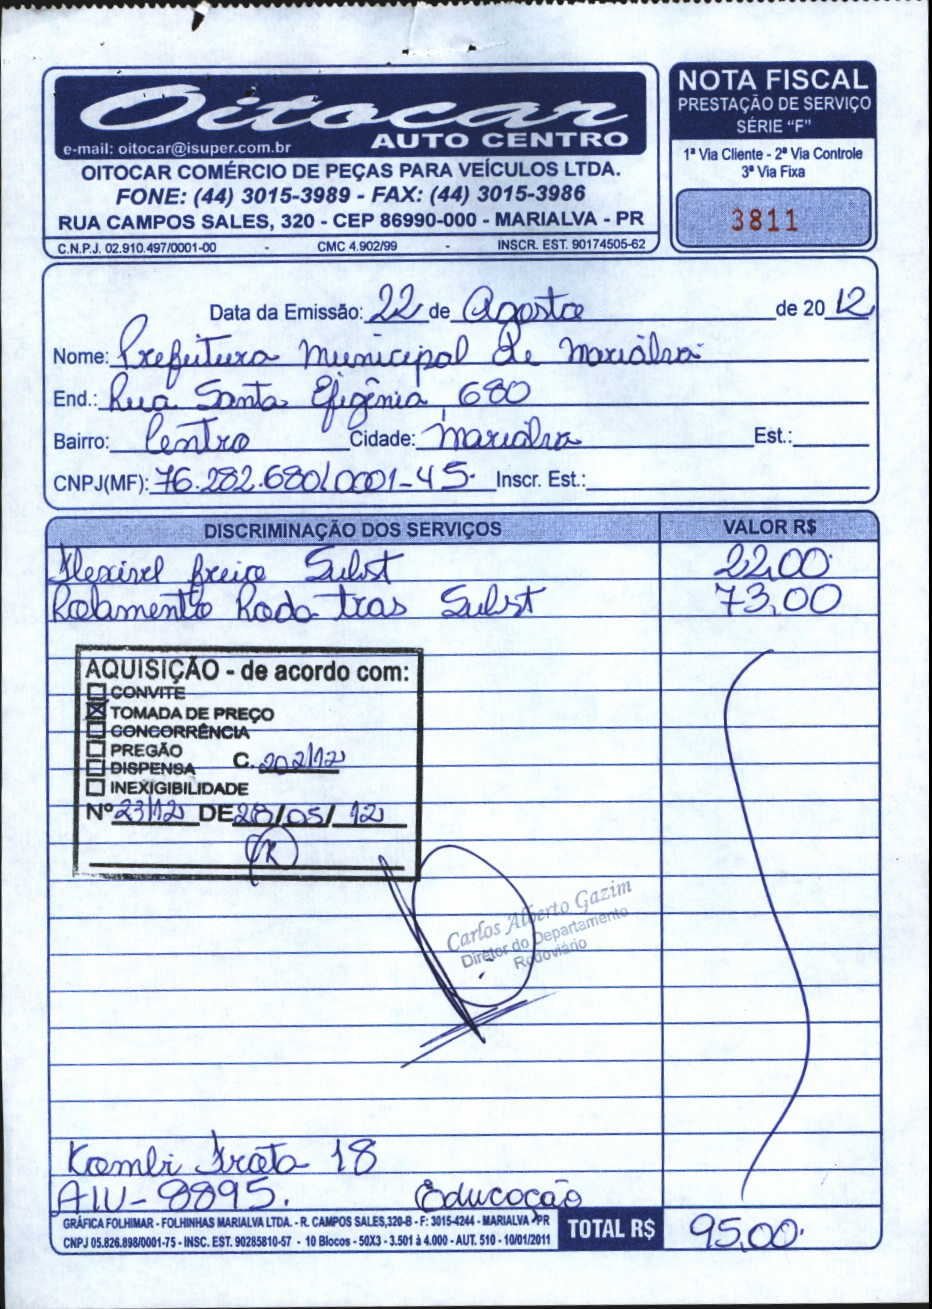 Oitocar
AUTO CENTRO
e-mail: oitocar@isuper.com.br
OITOCAR COMÉRCIO DE PEÇAS PARA VEÍCULOS LTDA.
FONE: (44) 3015-3989 - FAX: (44) 3015-3986
RUA CAMPOS SALES, 320 - CEP 86990-000 - MARIALVA - PR
C.N.P.J. 02.910.497/0001-00 - CMC 4.902/99 - INSCR. EST. 90174505-62
NOTA FISCAL
PRESTAÇÃO DE SERVIÇO
SÉRIE "F"
1ª Via Cliente - 2ª Via Controle
3ª Via Fixa
3811
Data da Emissão: 22 de Agosto de 2012
Nome: Prefeitura Municipal de Marialva
End.: Rua Santa Efigênia, 680
Bairro: Centro Cidade: Marialva Est.:
CNPJ(MF): 76.282.680/0001-45 Inscr. Est.:
DISCRIMINAÇÃO DOS SERVIÇOS VALOR R$
Flexivel freio Subst 22,00
Rolamento Roda tras Subst 73,00
AQUISIÇÃO - de acordo com:
CONVITE
TOMADA DE PREÇO
CONCORRÊNCIA
PREGÃO
DISPENSA C. 202/12
INEXIGIBILIDADE
Nº 23/12 DE 28/05/12
Carlos Alberto Gazim
Diretor do Departamento
Rodoviário
Kombi Frota 18
AIU-8895. Educação
GRÁFICA FOLHIMAR - FOLHINHAS MARIALVA LTDA. - R. CAMPOS SALES,320-B - F: 3015-4244 - MARIALVA - PR
CNPJ 05.826.898/0001-75 - INSC. EST. 90285810-57 - 10 Blocos - 50X3 - 3.501 à 4.000 - AUT. 510 - 10/01/2011
TOTAL R$ 95,00